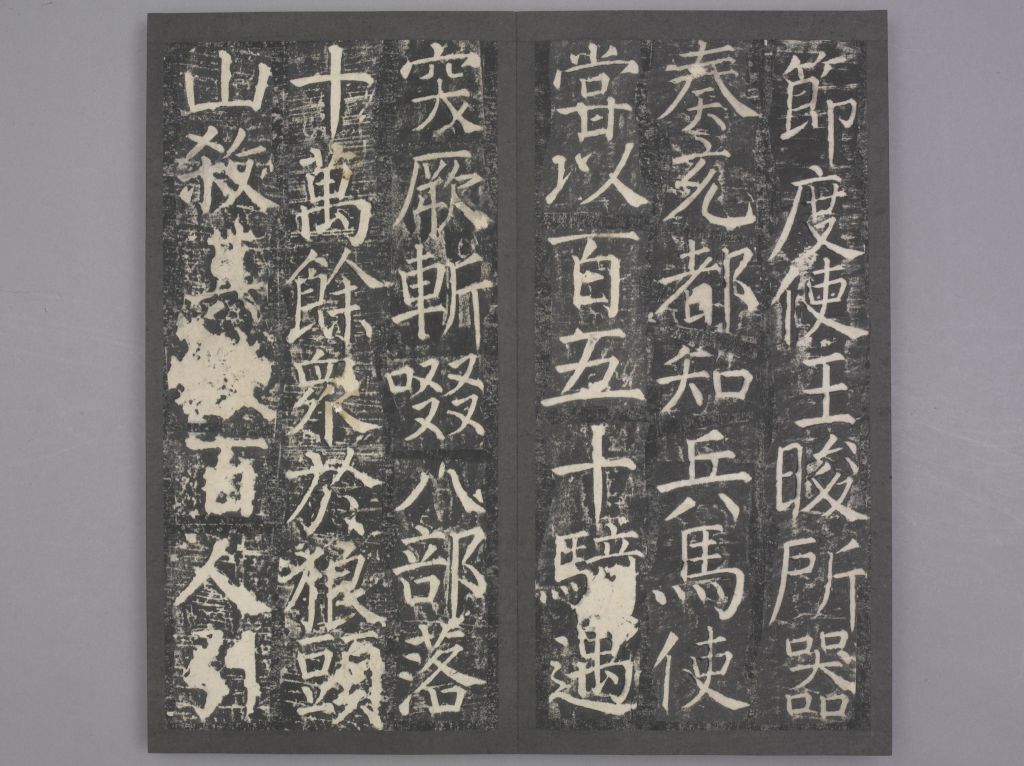 節度使王晙所器
奏充都知兵馬使
甞以百五十騎遇
突厥斬啜八部落
十萬餘衆於狼頭
山殺其百人引